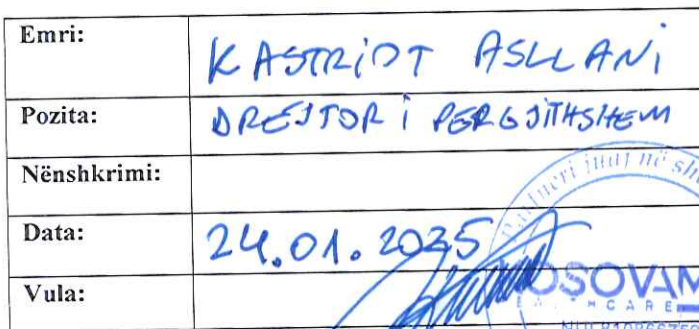 Emri: KASTRIOT ASLLANI
Pozita: DREJTOR i PERGJITHSHEM
Nënshkrimi:
Data: 24.01.2025
Vula:
Partneri juaj në
OSOVAM
HCARE
NUI